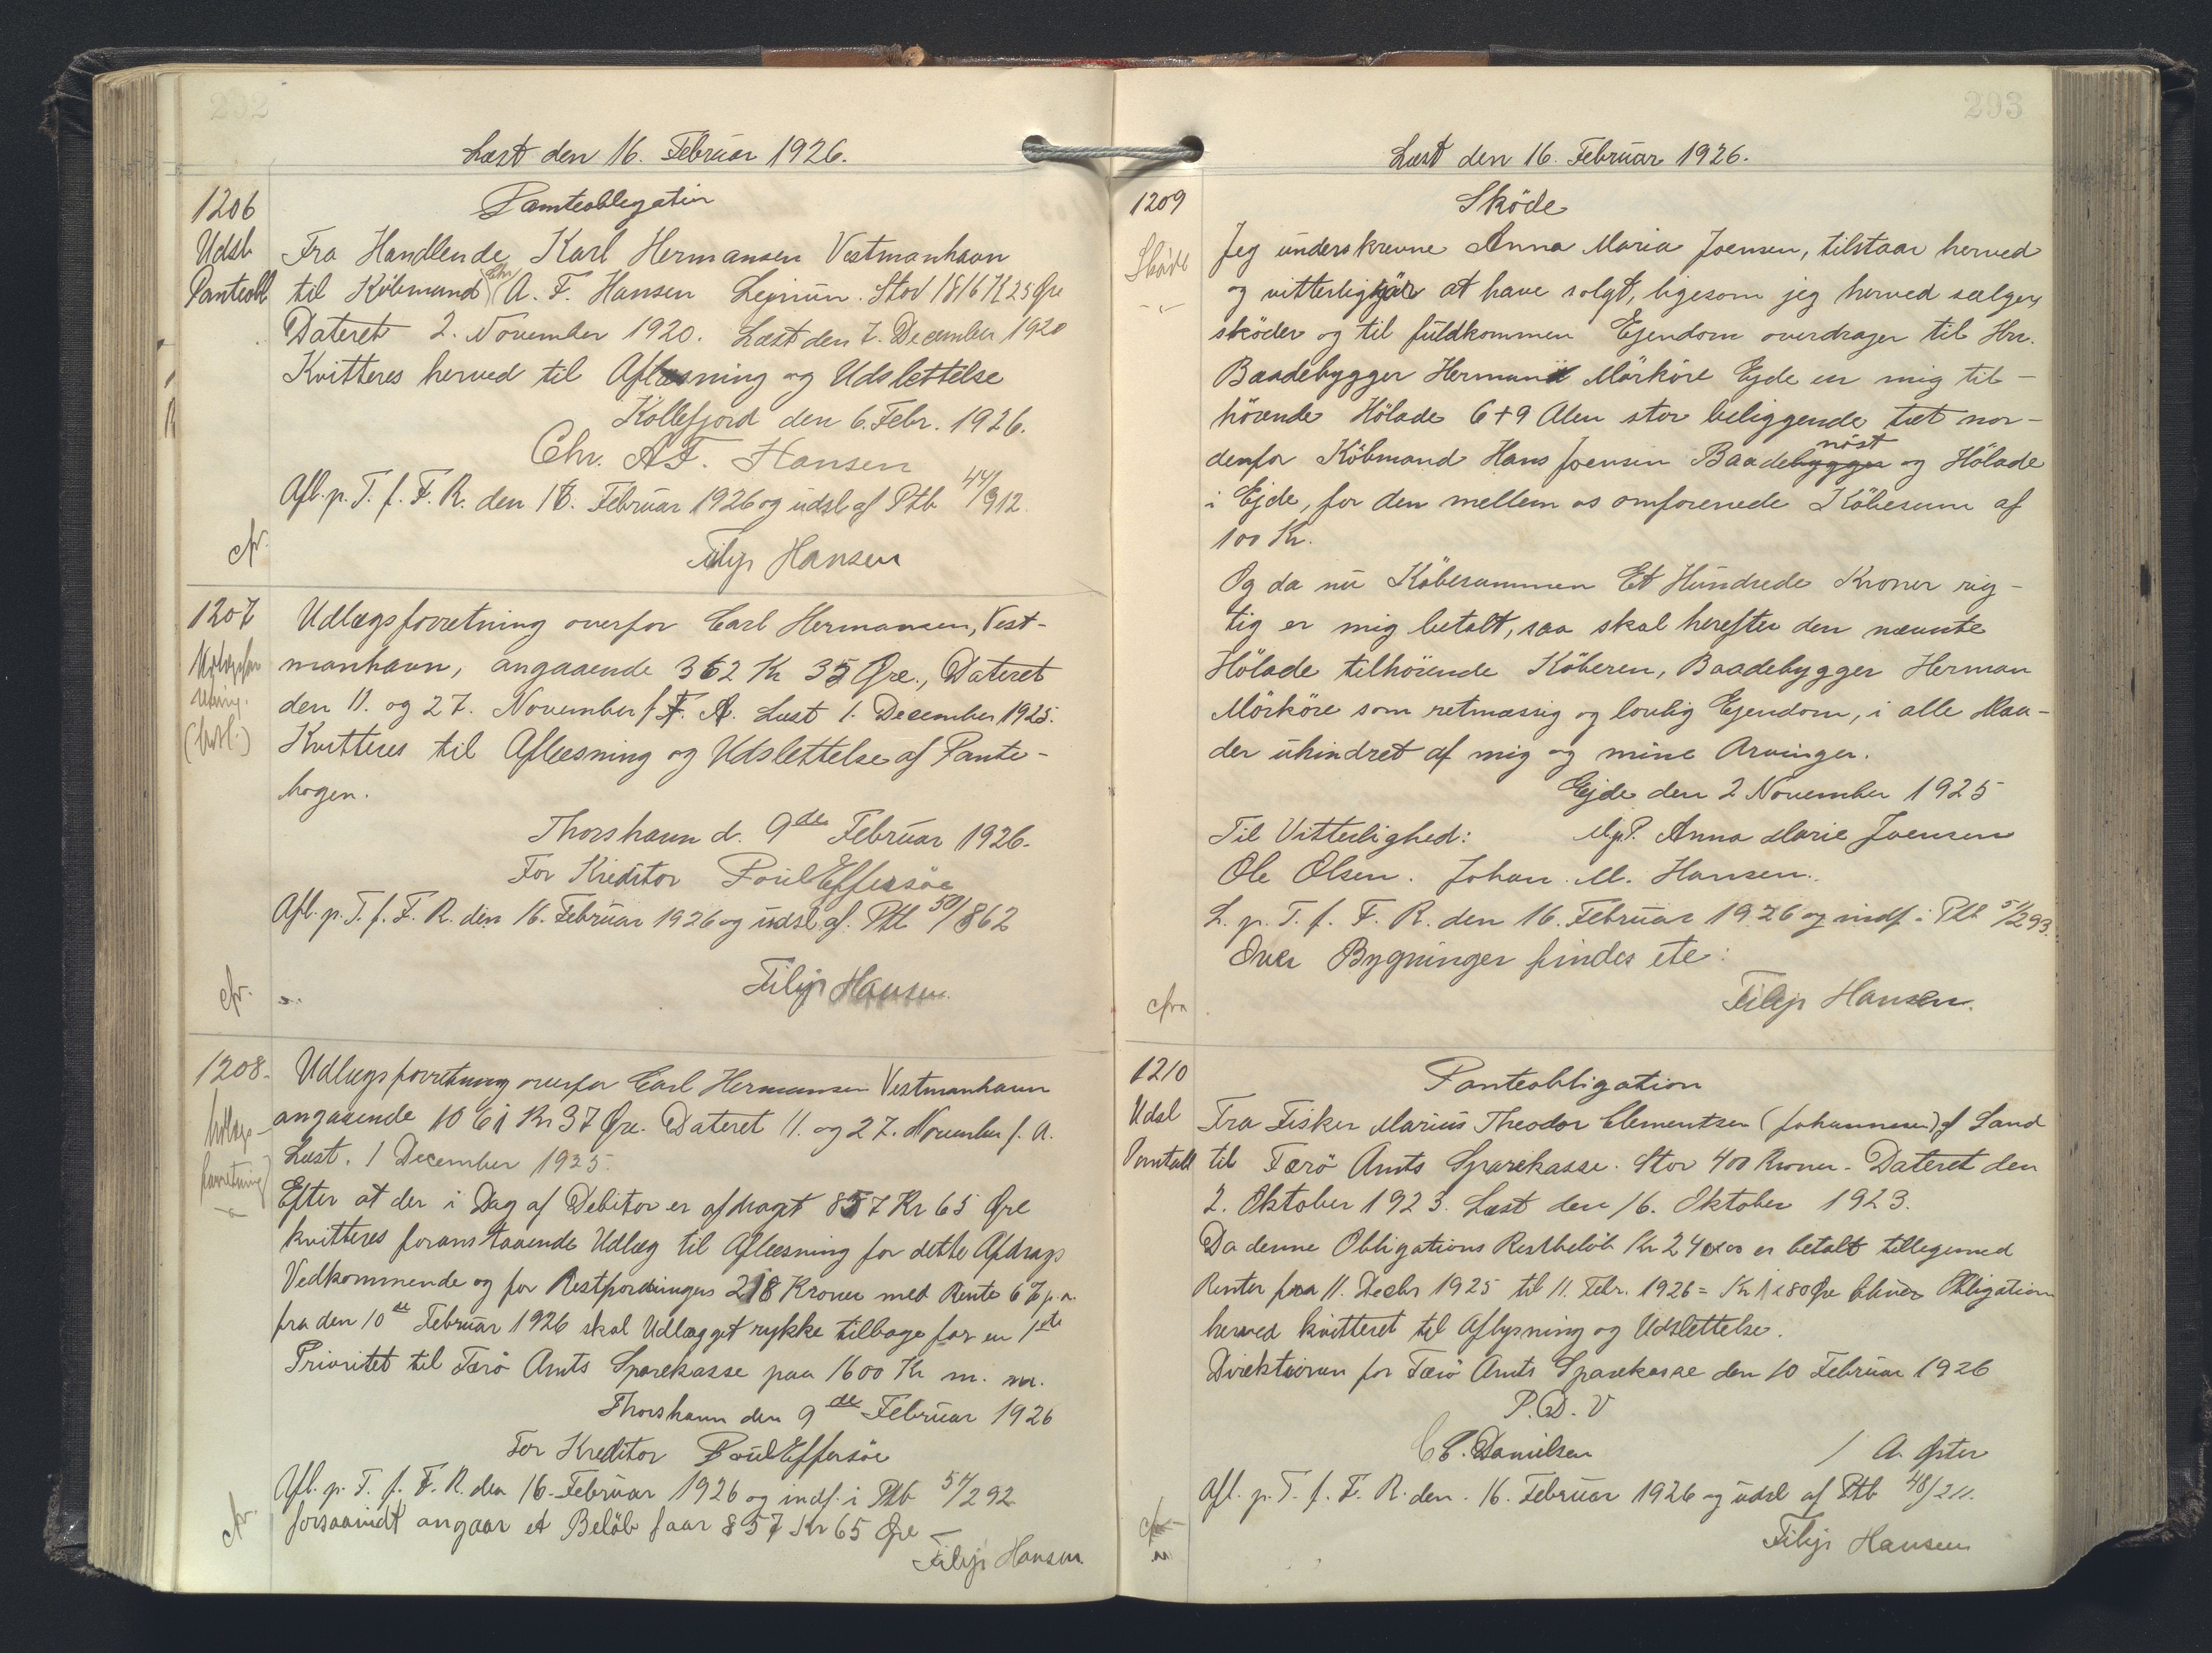 202
Læst den 16. Februar 1926.
1206
Udsl.
Panteobl
Panteobligation
Fra Handlende Karl Hermansen Vestmanhavn
til Købmand Chr. A. F. Hansen Lejnum. Stor 1816 K 25 Øre
Dateret 2. November 1920. Læst den 7. December 1920
Kvitteres herved til Aflæsning og Udslettelse
Kollefjord den 6. Febr. 1926.
Chr. A F. Hansen
Afl. p. T. f. F. R. den 16. Februar 1926 og udsl af Ptb 44/912.
cfr.
Filip Hansen
1207
Udlægsforretning overfor Carl Hermansen, Vest-
manhavn, angaaende 362 Kr 35 Øre., Dateret
den 11. og 27. November f. A. Læst 1. December 1925.
Kvitteres til Aflæsning og Udslettelse af Pante-
bogen.
Thorshavn d. 9de Februar 1926.
For Kreditor Poul Effersøe
Afl. p. T. f. F. R. den 16. Februar 1926 og udsl. af. Ptb 50/862
Filip Hansen
cfr.
1208.
Udlægsforretning overfor Carl Hermansen Vestmanhavn
angaaende 1061 Kr 37 Øre. Dateret 11. og 27. November f. A.
Læst. 1 December 1925.
Efter at der i Dag af Debitor er afdraget 857 Kr 65 Øre
kvitteres foranstaaende Udlæg til Aflæsning for dette Afdrags
Vedkommende og for Restfordringens 218 Kroner med Rente 6 % p. a.
fra den 10de Februar 1926 skal Udlægget rykke tilbage for en 1ste
Prioritet til Færø Amts Sparekasse paa 1600 Kr m. m.
Thorshavn den 9de Februar 1926
For Kreditor Poul Effersøe
Afl. p. T. f. F. R. den 16. Februar 1926 og indf. i Ptb 51/292
forsaavidt angaar et Beløb saar 857 Kr 65 Øre
cfr.
Filip Hansen
203
Læst den 16. Februar 1926.
1209
Sköde
Sköde
Jeg underskrevne Anna Maria Joensen, tilstaar herved
og vitterliggör at have solgt, ligesom jeg herved sælger
sköder og til fuldkommen Ejendom overdrager til Hrr.
Baadebygger Herman Mörköre Ejde en mig til-
hörende Hölade 6+9 Alen stor beliggende tæt nor-
denfor Köbmand Hans Joensen Baadebygger nöst og Hölade
i Ejde, for den mellem os omforenede Köbesum af
100 Kr.
Og da nu Köbesummen Et Hundrede Kroner rig-
tig er mig betalt, saa skal herefter den nævnte
Hölade tilhörende Köberen, Baadebygger Herman
Mörköre som retmæssig og lovlig Ejendom, i alle Maa-
der uhindret af mig og mine Arvinger.
Ejde den 2 November 1925
Til Vitterlighed: M. p. P. Anna Marie Joensen
Ole Olsen. Johan. M. Hansen.
L. p. T. f. F. R. den 16. Februar 1926 og indf. i Ptb 51/293.
Over Bygninger findes ete:
cfra
Filip Hansen.
1210
Udsl
Panteobl
Panteobligation
Fra Fisker Marius Theodor Clementsen (Johannesen) af Sand
til Færö Amts Sparekasse. Stor 400 Kroner. Dateret den
2. Oktober 1923. Læst den 16. Oktober 1923.
Da denne Obligations Restbelöb Kr 240.00 er betalt tilligemed
Renter fra 11. Decbr 1925 til 11. Febr. 1926 = Kr 80 Øre bliver Obligation
herved kvitteret til Aflysning og Udslettelse.
Direktionen for Færö Amts Sparekasse den 10 Februar 1926
P. D. V
C C. Danielsen / A. Øster
Afl. p. T. f. F. R. den. 16. Februar 1926 og udsl af Ptb 48/211.
Filip Hansen